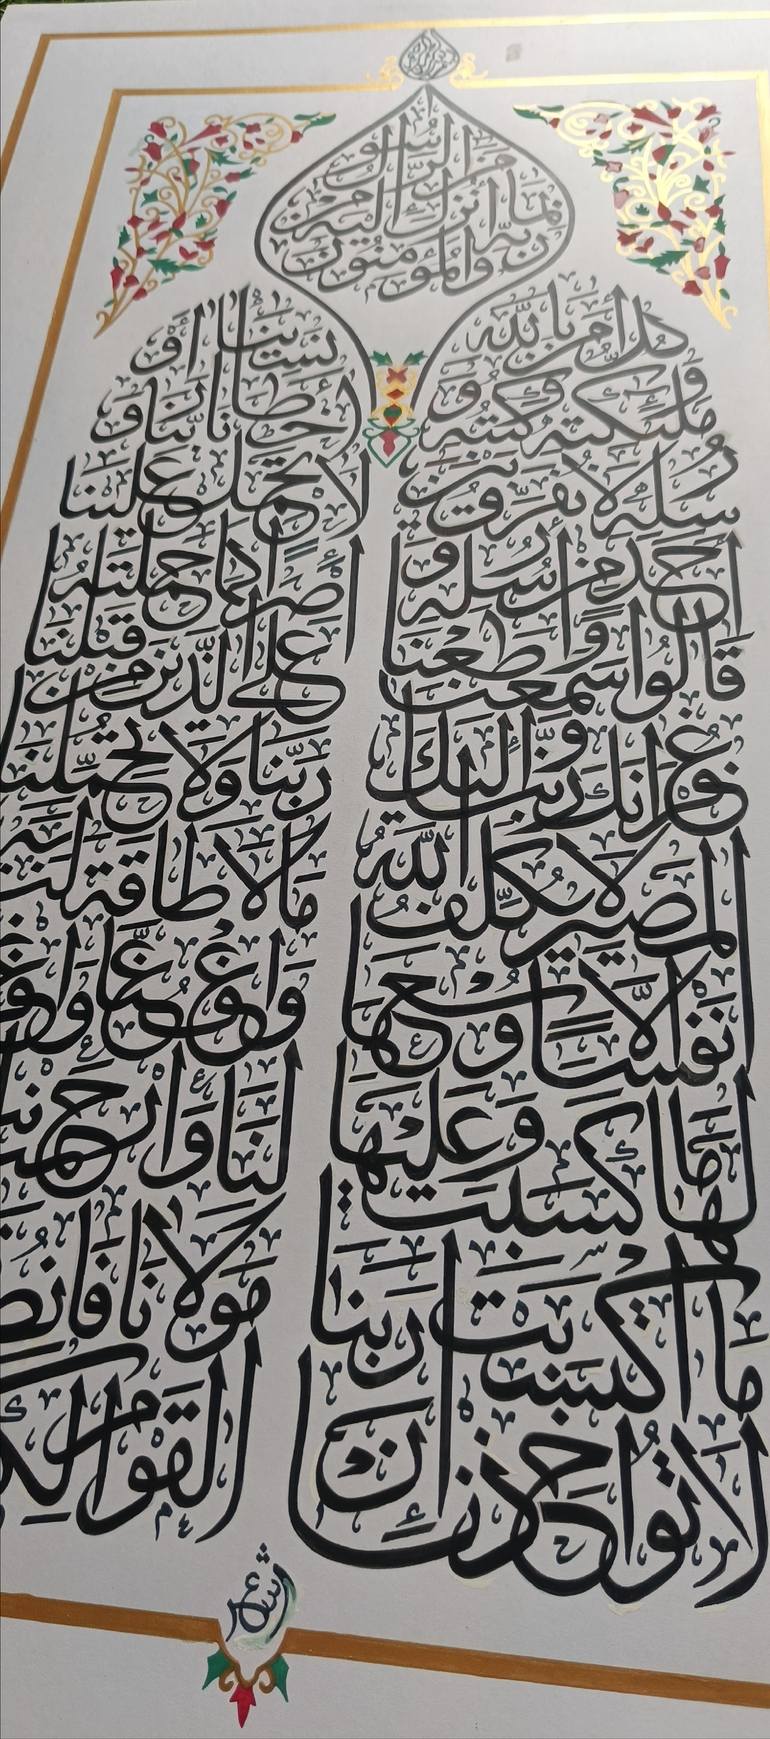 آمن الرسول
بما أنزل إليه من
ربه والمؤمنون
كل آمن بالله
وملئكته وكتبه و
رسله لا نفرق بين
أحد من رسله و
قالوا سمعنا وأطعنا
غفرانك ربنا وإليك
المصير لا يكلف الله
نفسا إلا وسعها
لها ما كسبت وعليها
ما اكتسبت ربنا
لا تؤاخذنا إن
نسينا أو
أخطأنا ربنا و
لا تحمل علينا
إصرا كما حملته
على الذين من قبلنا
ربنا ولا تحملنا
ما لا طاقة لنا به
واعف عنا واغف
لنا وارحمنا
مولانا فانص
القوم الك